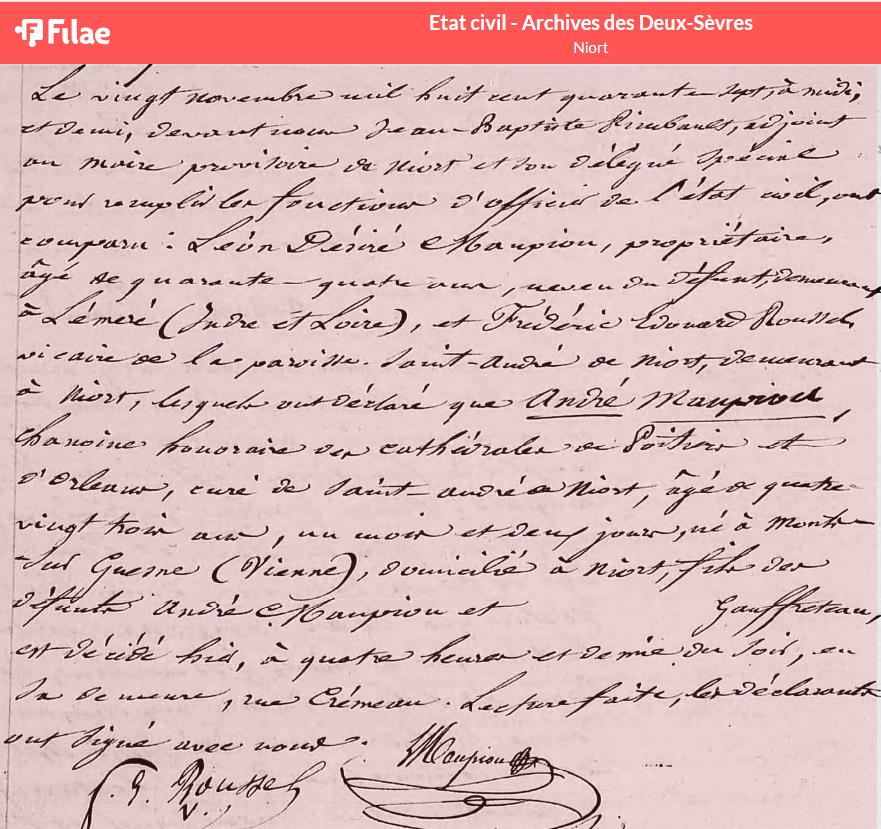 Filae
Etat civil - Archives des Deux-Sèvres
Niort
Le vingt novembre mil huit cent quarante-sept, à midi,
et demi, devant nous Jean-Baptiste Rimbault, adjoint
au maire provisoire de Niort et son délégué spécial
pour remplir les fonctions d'officier de l'état civil, ont
comparu : Léon Désiré Maupiou, propriétaire,
âgé de quarante-quatre ans, neveu du défunt, demeurant
à Lémeré (Indre et Loire), et Frédéric Edouard Roussel,
vicaire de la paroisse Saint-André de Niort, demeurant
à Niort, lesquels ont déclaré que André Maupiou,
chanoine honoraire des cathédrales de Poitiers et
d'Orléans, curé de Saint-André de Niort, âgé de quatre-
vingt trois ans, un mois et deux jours, né à Monts-
sur Guesne (Vienne), domicilié à Niort, fils des
défunts André Maupiou et Gauffreteau,
est décédé hier, à quatre heures et demie du soir, en
sa demeure, rue Crémeau. Lecture faite, les déclarants
ont signé avec nous.
Maupiou
Roussel
v.